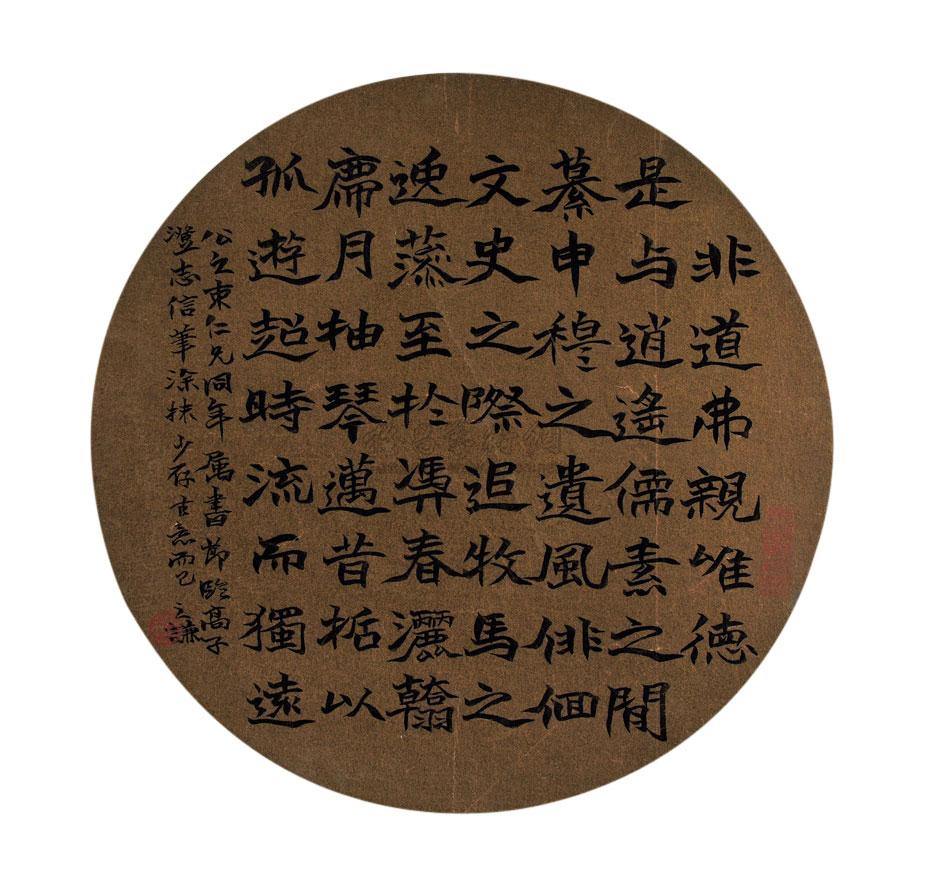 非道弗親唯德
是与逍遙儒素之閒
纂申穆之遺風俳佪
文史之際追牧馬之
逸藻至於憑春灑翰
席月抽琴邁昔悊以
孤遊超時流而獨遠
公之東仁兄同年属書節臨高子
澄志信筆涂抹少存古意而已之謙